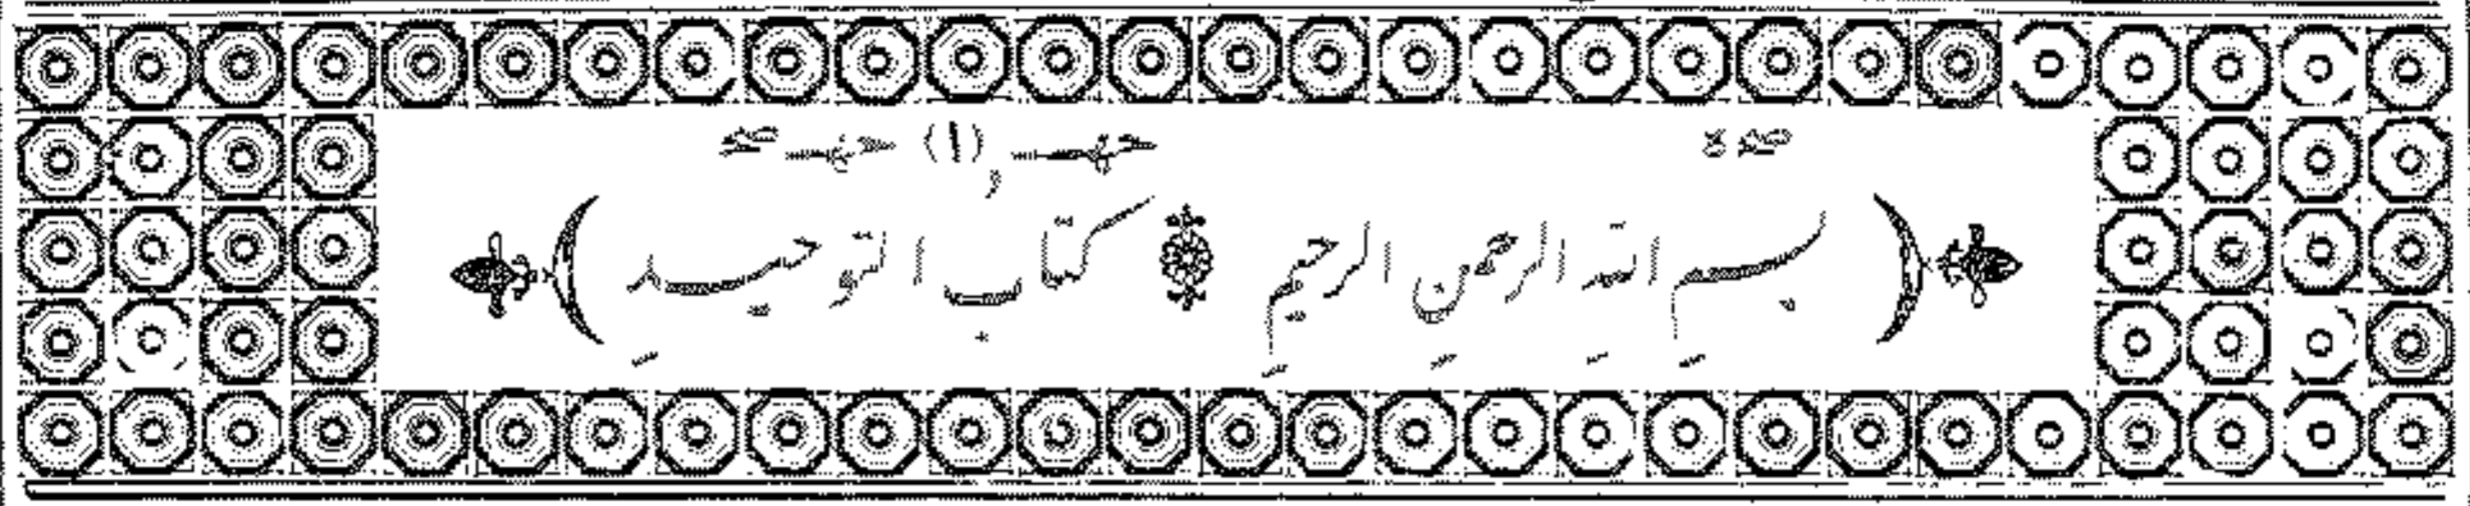 (١)
بسم الله الرحمن الرحيم كتاب التوحيد